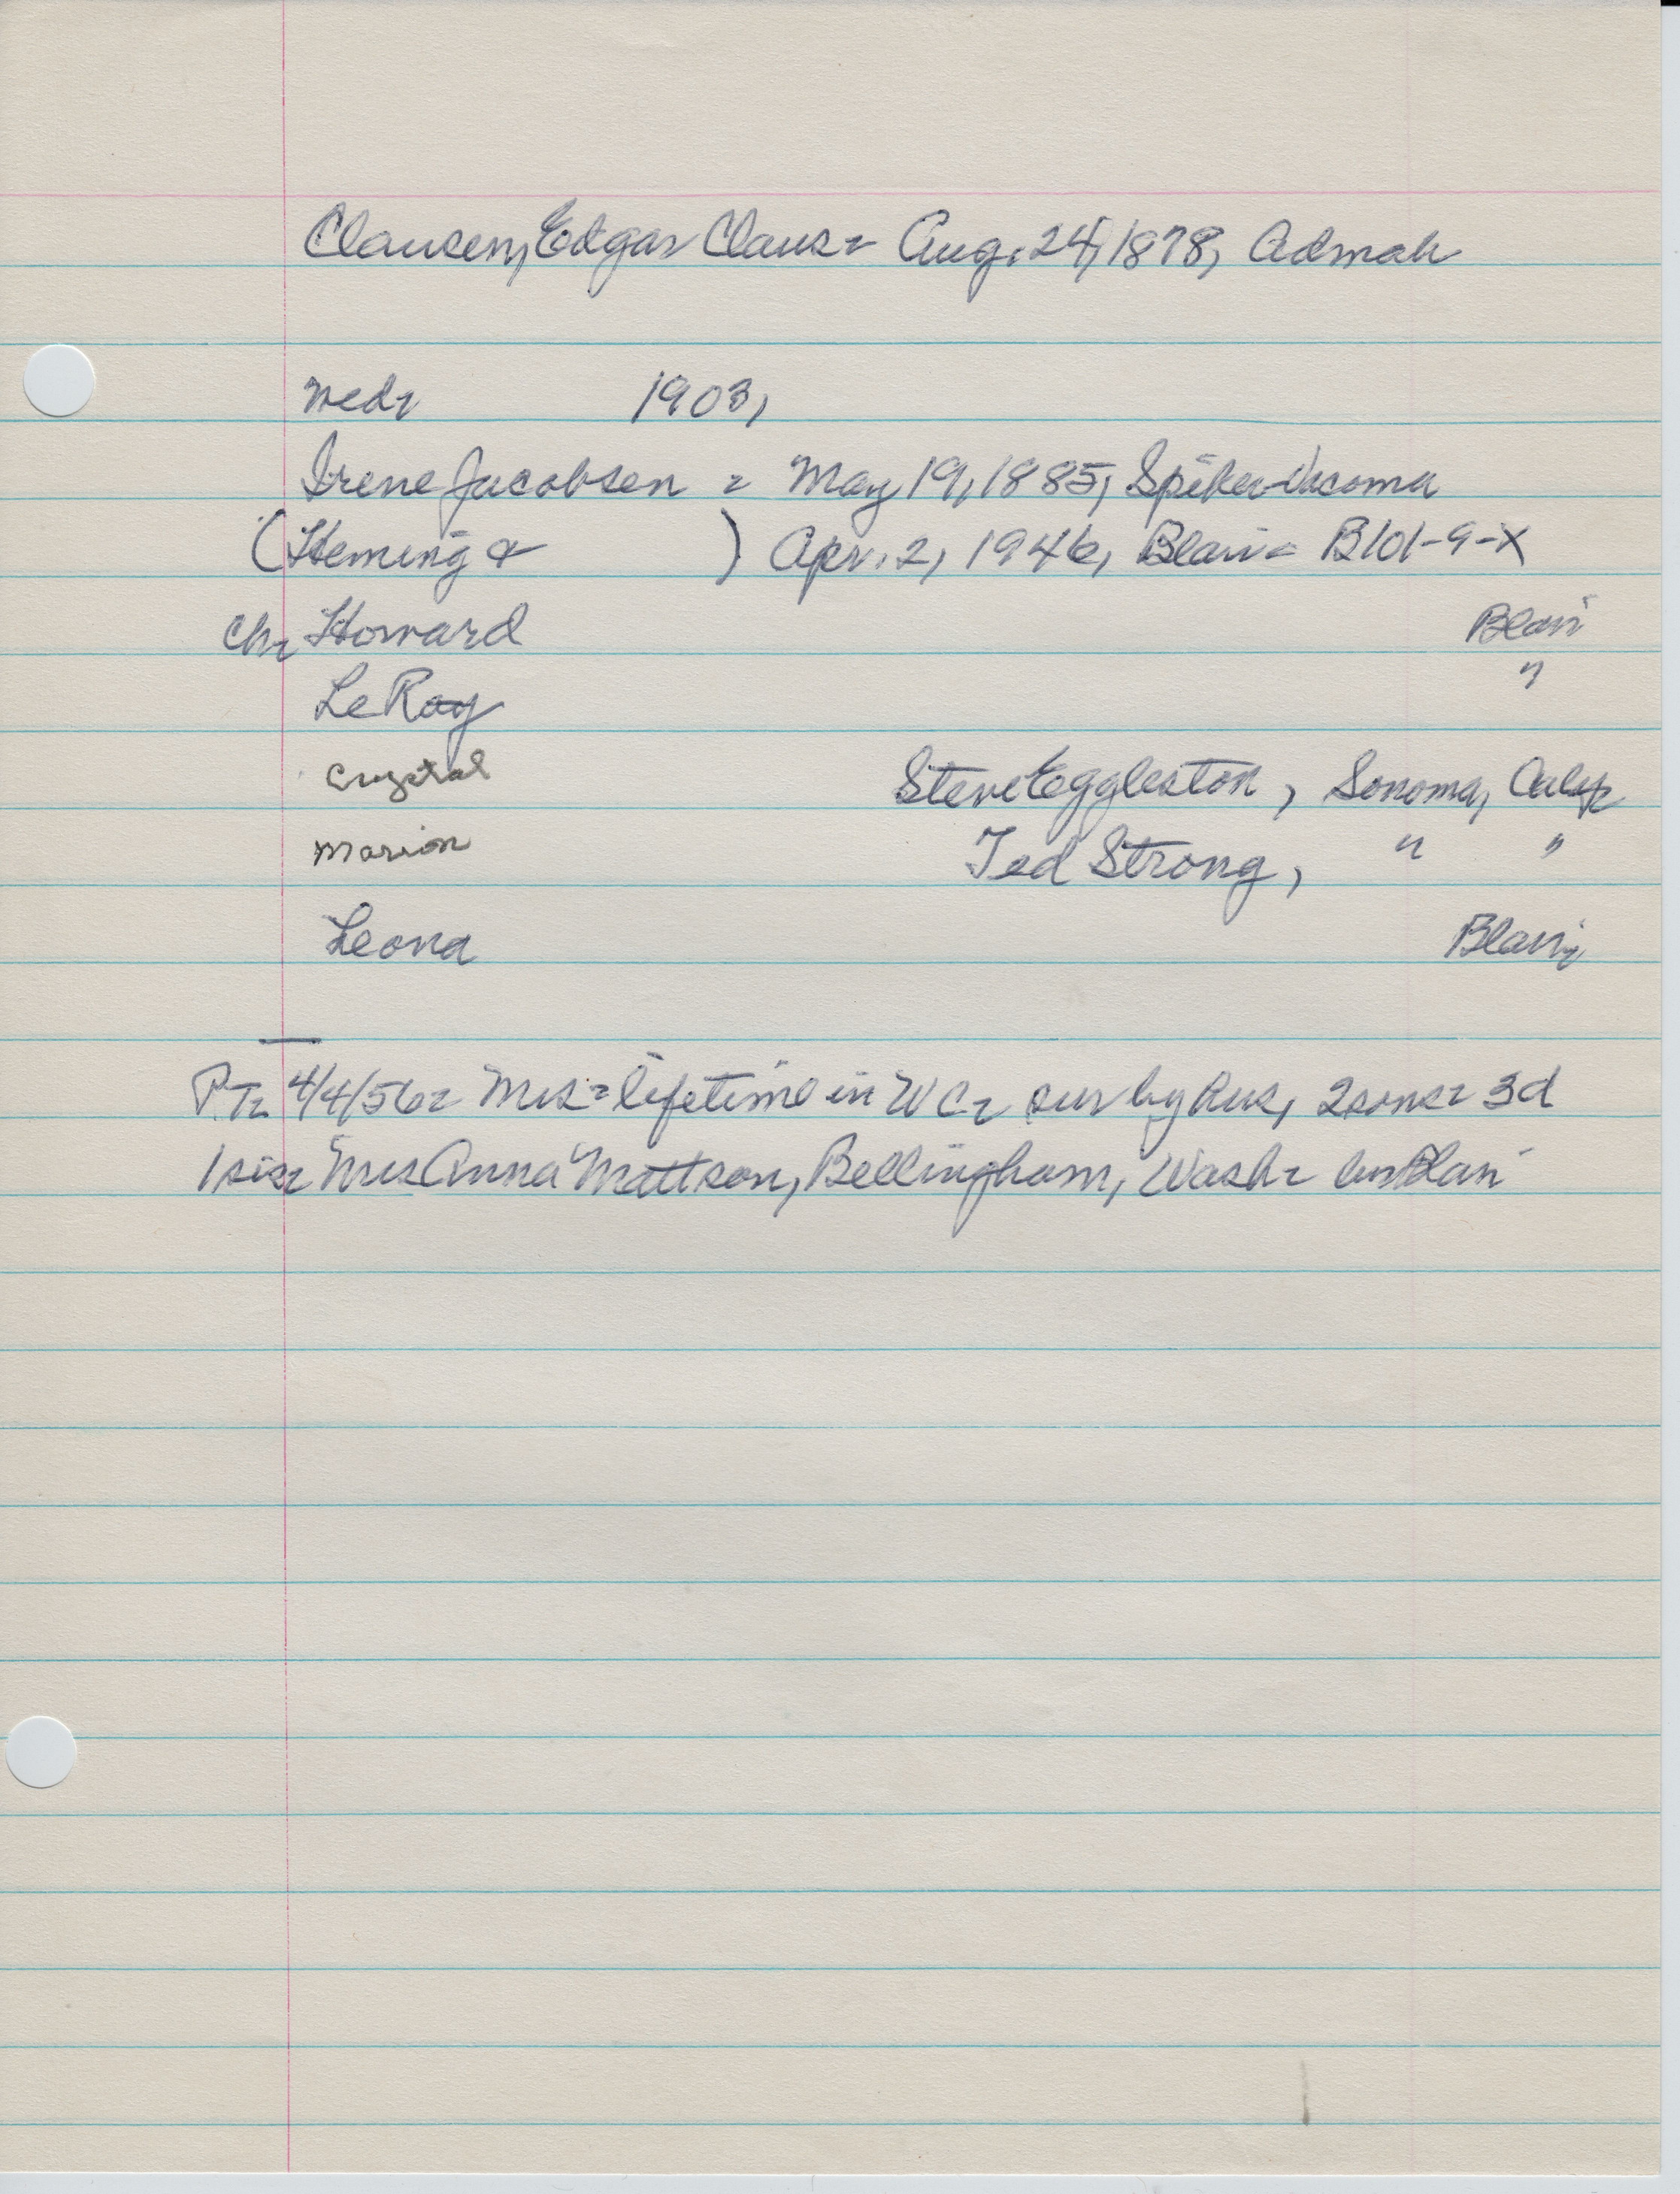 Clausen, Edgar Claus - Aug. 24, 1878, Admah
Wed- 1903,
Irene Jacobsen = May 19, 1885, Spiker-
(Heming & ) Apr. 2, 1946, Blair - B101-9-X
Ch- Howard Blair
LeRoy "
Crystal Steve Eggleston, Sonoma, Calif
Marion Ted Strong, " "
Leona Blair
PT- 4/4/56- Mrs = lifetime in WC- sur by hus, 2 sons - 3d
1 sis - Mrs Anna Mattson, Bellingham, Wash - Blair